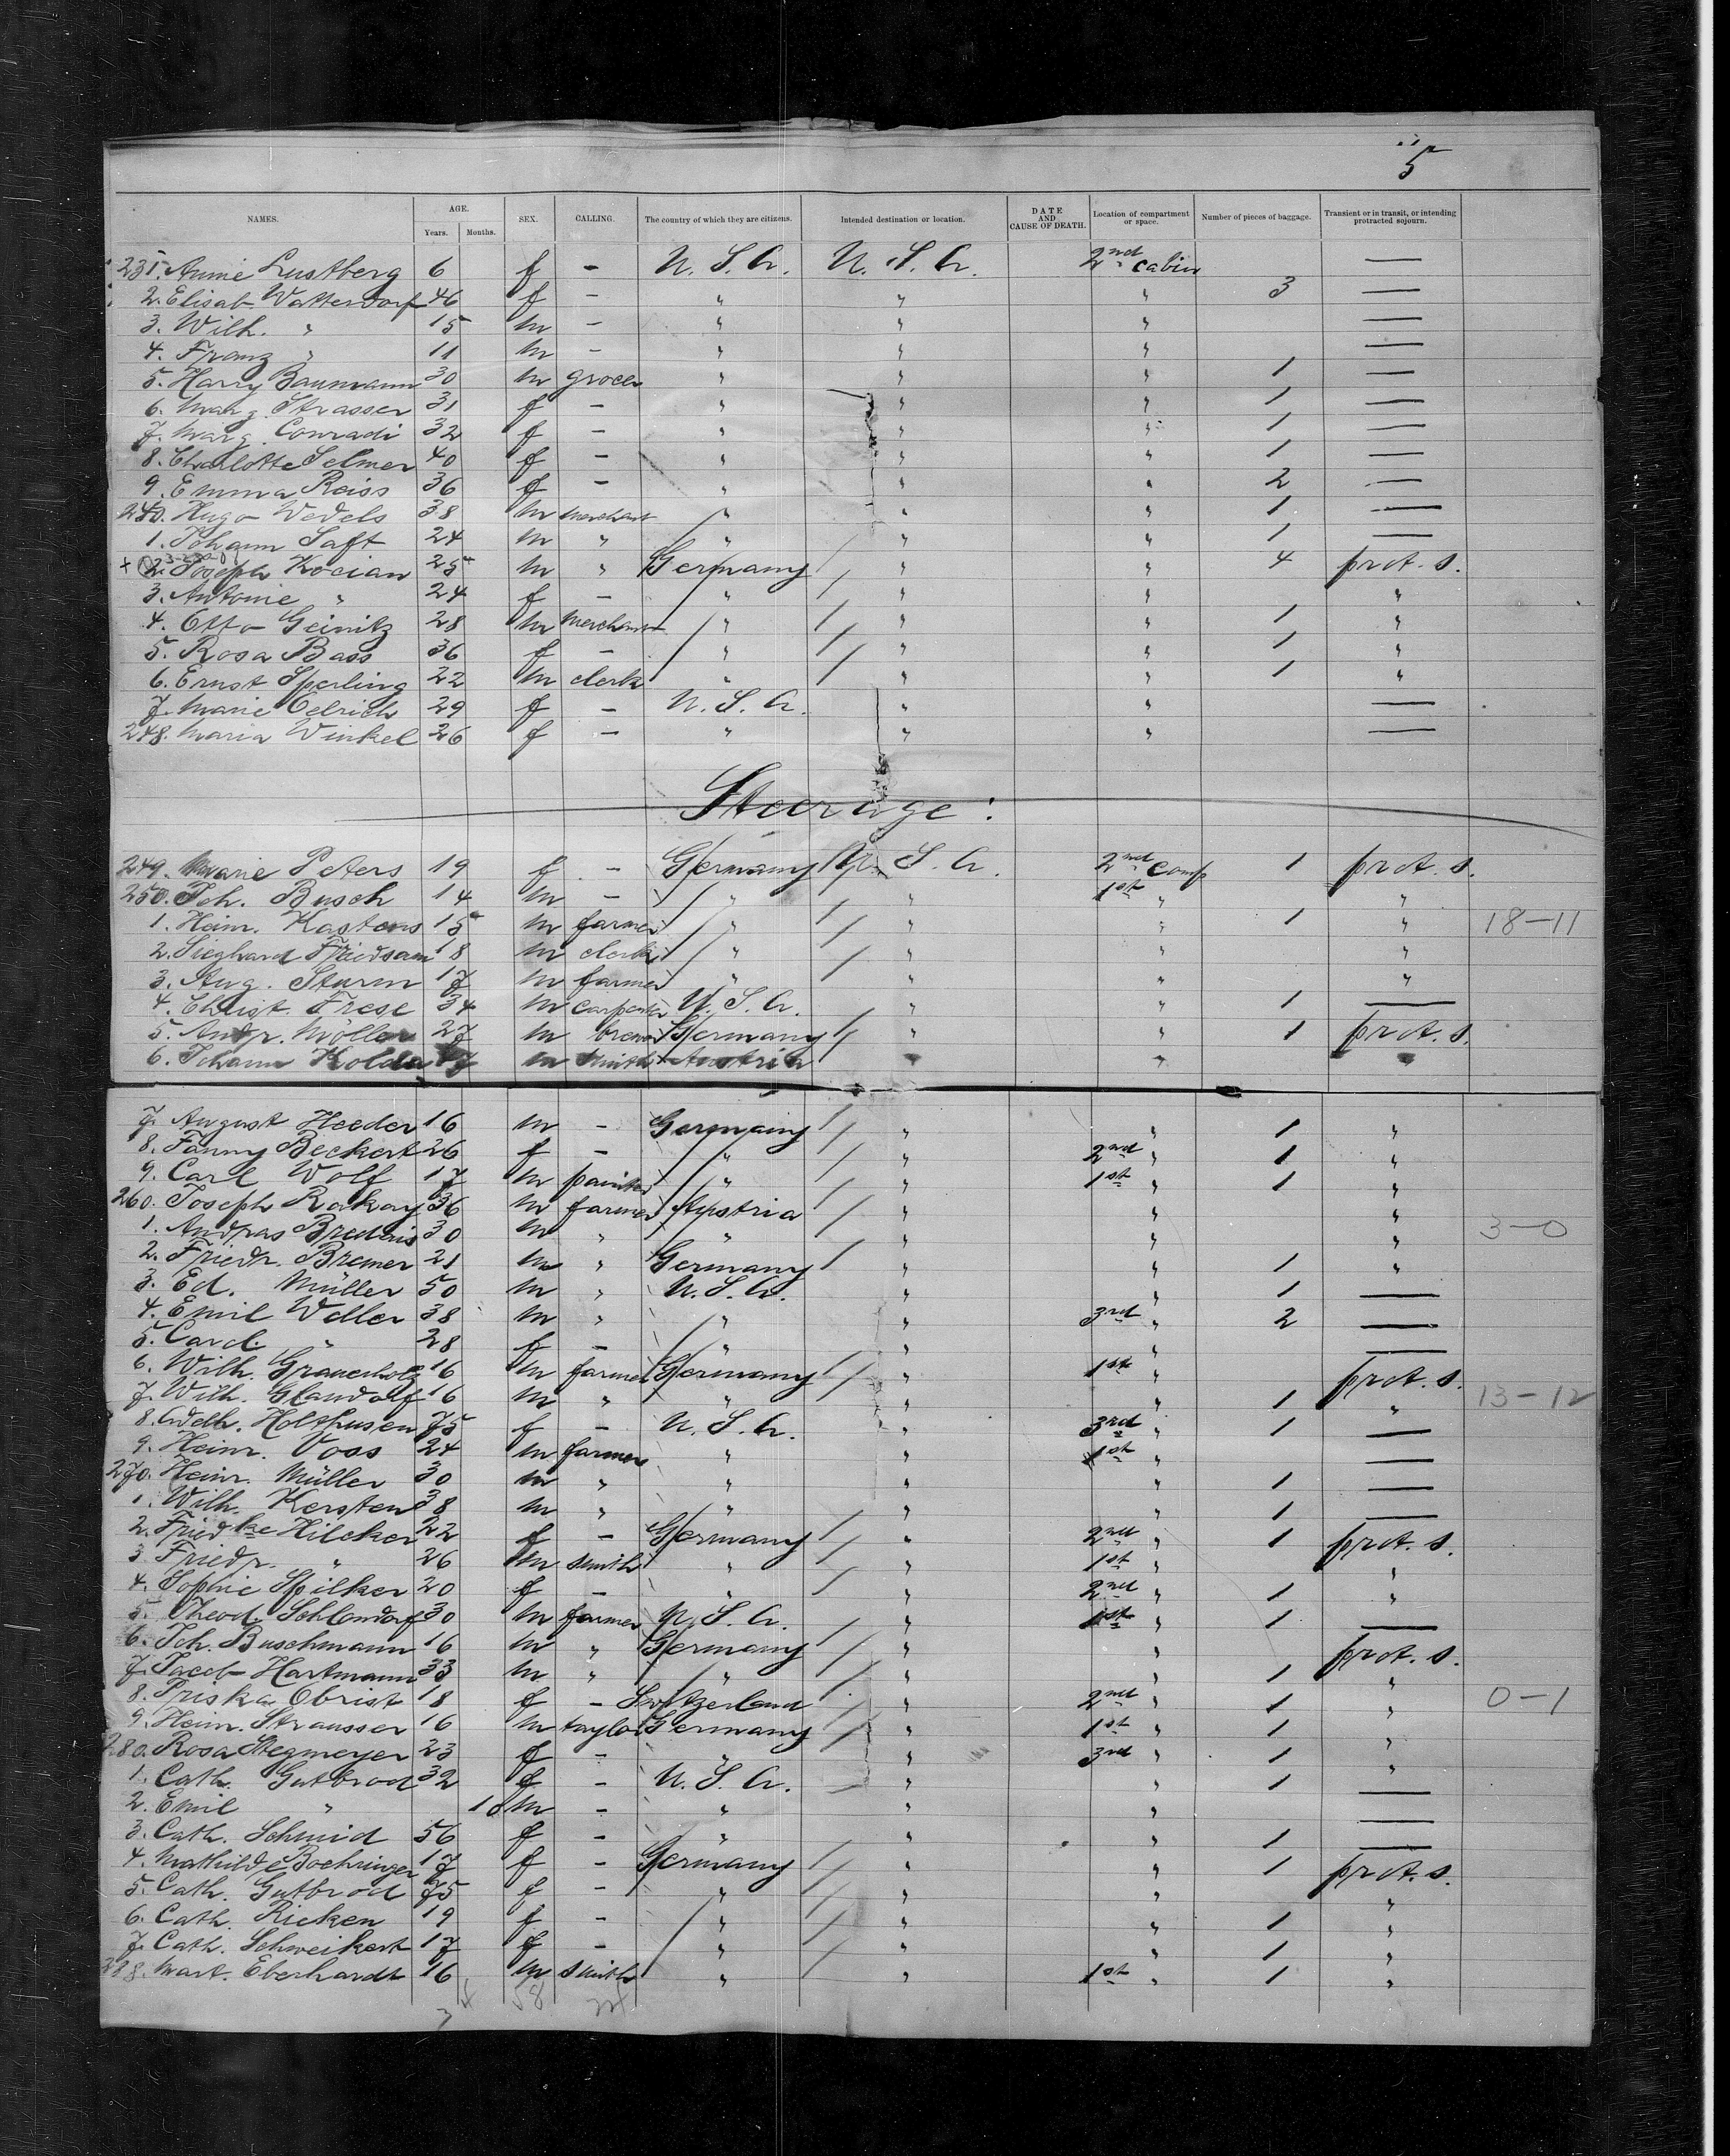 5
NAMES. AGE. Years. Months. SEX. CALLING. The country of which they are citizens. Intended destination or location. DATE AND CAUSE OF DEATH. Location of compartment or space. Number of pieces of baggage. Transient or in transit, or intending protracted sojourn.
231. Annie Lustberg 6 f — U. S. A. U. S. A. 2nd cabin —
2. Elisab Watterdorf 46 f — " " " 3 —
3. Wilh. " 15 m — " " " —
4. Franz " 11 m — " " " —
5. Harry Baumann 30 m grocer " " " 1 —
6. Marg. Strasser 31 f — " " " 1 —
7. Marg. Conradi 32 f — " " " 1 —
8. Charlotte Selmer 40 f — " " " 1 —
9. Emma Reiss 36 f — " " " 2 —
240. Hugo Wedels 38 m merchant " " " 1 —
1. Johann Saft 24 m " " " " 1 —
+ 2. Joseph Kocian 25 m " Germany / " " 4 prot. s.
3. Antonie " 24 f — " / " " "
4. Otto Geinitz 28 m merchant " / " " 1 "
5. Rosa Bass 36 f — " / " " 1 "
6. Ernst Sperling 22 m clerk " / " " 1 "
7. Marie Oelrich 29 f — U. S. A. " " —
248. Maria Winkel 26 f — " " " —
Steerage:
249. Marie Peters 19 f — Germany U. S. A. 2nd comp 1 prot. s.
250. Joh. Busch 14 m — " / " 1st " "
1. Heinr. Kastens 15 m farmer " / " " 1 " 18-11
2. Sieghard Friedsam 18 m clerk " / " " "
3. Aug. Sturm 17 m farmer " / " " "
4. Christ. Frese 34 m carpenter U. S. A. " " 1 —
5. Andr. Möller 27 m brewer Germany / " " 1 prot. s.
6. Johann Kolda 17 m smith Austria " " "
7. August Heeder 16 m — Germany / " " 1 "
8. Fanny Beckert 26 f — " / " 2nd " 1 "
9. Carl Wolf 17 m painter " / " 1st " 1 "
260. Joseph Rakay 36 m farmer Austria / " " "
1. Andras Brednis 30 m " " " " " 3-0
2. Friedr. Bremer 21 m " Germany / " " 1 "
3. Ed. Müller 50 m " U. S. A. " " 1 —
4. Emil Weller 38 m " " " 3rd " 2 —
5. Carol. " 28 f — " " " —
6. Wilh. Grauerholz 16 m farmer Germany / " 1st " prot. s.
7. Wilh. Glandorf 16 m " " / " " 1 " 13-12
8. Adelh. Holthusen 75 f — U. S. A. " 3rd " 1 —
9. Heinr. Voss 24 m farmer " " 1st " —
270. Heinr. Müller 30 m " " " " 1 —
1. Wilh. Kersten 38 m " " " " 1 —
2. Friedke Hilcker 22 f — Germany / " 2nd " 1 prot. s.
3. Friedr. " 26 m smith " / " 1st " "
4. Sophie Spilker 20 f — " / " 2nd " 1 "
5. Theod. Schlondorf 30 m farmer U. S. A. " 1st " 1 —
6. Joh. Buschmann 16 m " Germany / " " prot. s.
7. Jacob Hartmann 33 m " " / " " 1 "
8. Priska Obrist 18 f — Switzerland / " 2nd " 1 " 0-1
9. Heinr. Strausser 16 m taylor Germany / " 1st " 1 "
280. Rosa Stegmeyer 23 f — " / " 3rd " 1 "
1. Cath. Gutbrod 32 f — U. S. A. " " 1 —
2. Emil " 10 m — " " " —
3. Cath. Schmid 56 f — " " " 1 —
4. Mathilde Boehringer 17 f — Germany / " " 1 prot. s.
5. Cath. Gutbrod 75 f — " / " " "
6. Cath. Ricken 19 f — " / " " 1 "
7. Cath. Schweikert 17 f — " / " " 1 "
288. Mart. Eberhardt 16 m smith " / " 1st " 1 "
58